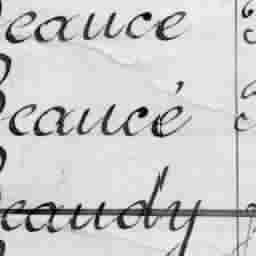 Beauce
Beaucé
Beaudy